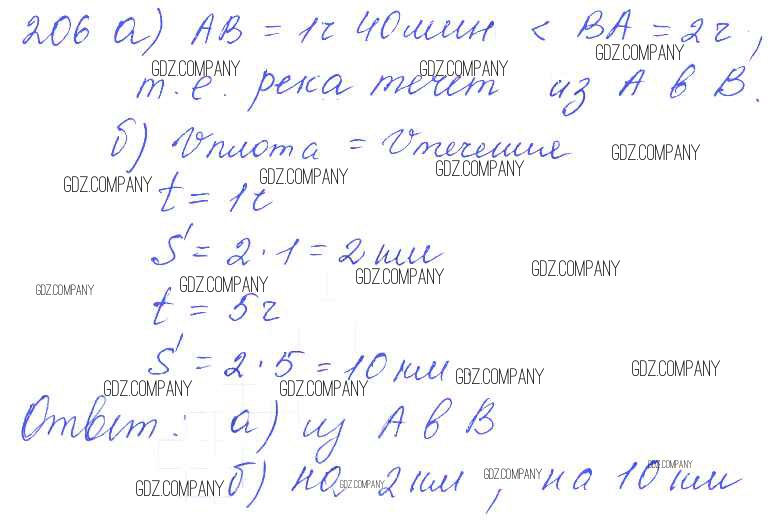 206 а) AB = 1ч 40мин < BA = 2ч,
GDZ.COMPANY
GDZ.COMPANY GDZ.COMPANY
т.е. река течет из А в В.
б) Vплота = Vтечение
GDZ.COMPANY
GDZ.COMPANY GDZ.COMPANY GDZ.COMPANY
t = 1ч
S' = 2 · 1 = 2 км
GDZ.COMPANY GDZ.COMPANY GDZ.COMPANY GDZ.COMPANY
t = 5ч
S' = 2 · 5 = 10 км
GDZ.COMPANY GDZ.COMPANY GDZ.COMPANY GDZ.COMPANY
Ответ: а) из А в В
б) на 2 км, на 10 км
GDZ.COMPANY GDZ.COMPANY GDZ.COMPANY GDZ.COMPANY